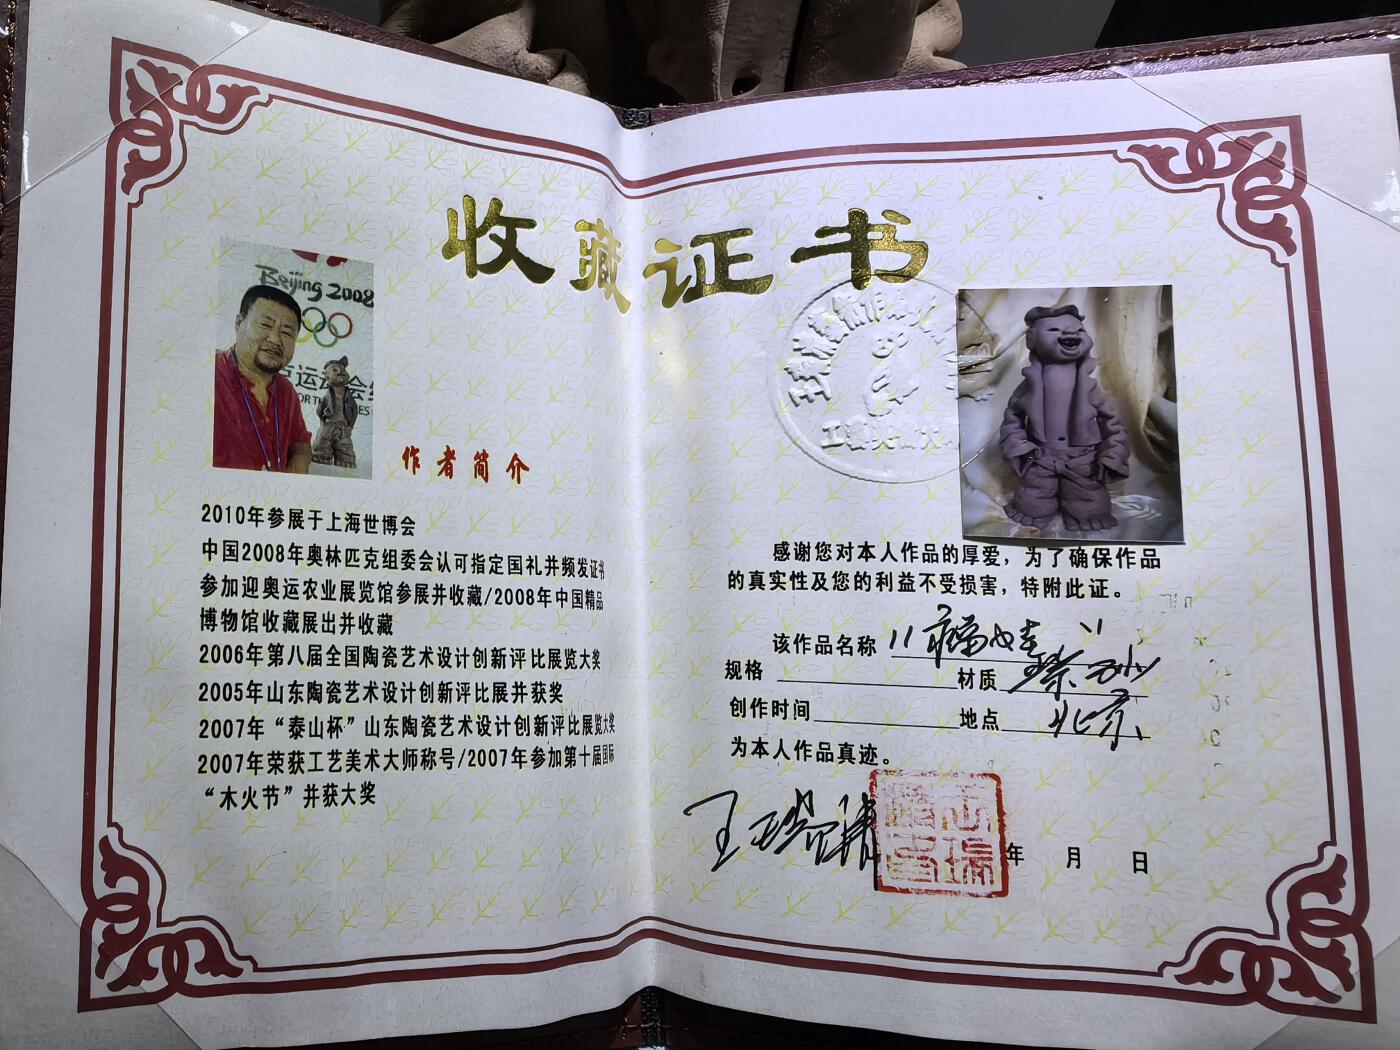 收藏证书
Beijing 2008
作者简介
2010年参展于上海世博会
中国2008年奥林匹克组委会认可指定国礼并频发证书
参加迎奥运农业展览馆参展并收藏/2008年中国精品
博物馆收藏展出并收藏
2006年第八届全国陶瓷艺术设计创新评比展览大奖
2005年山东陶瓷艺术设计创新评比展并获奖
2007年“泰山杯”山东陶瓷艺术设计创新评比展览大奖
2007年荣获工艺美术大师称号/2007年参加第十届国际
“木火节”并获大奖
感谢您对本人作品的厚爱，为了确保作品
的真实性及您的利益不受损害，特附此证。
该作品名称 福娃
规格 材质 紫砂
创作时间 地点 北京
为本人作品真迹。
年 月 日